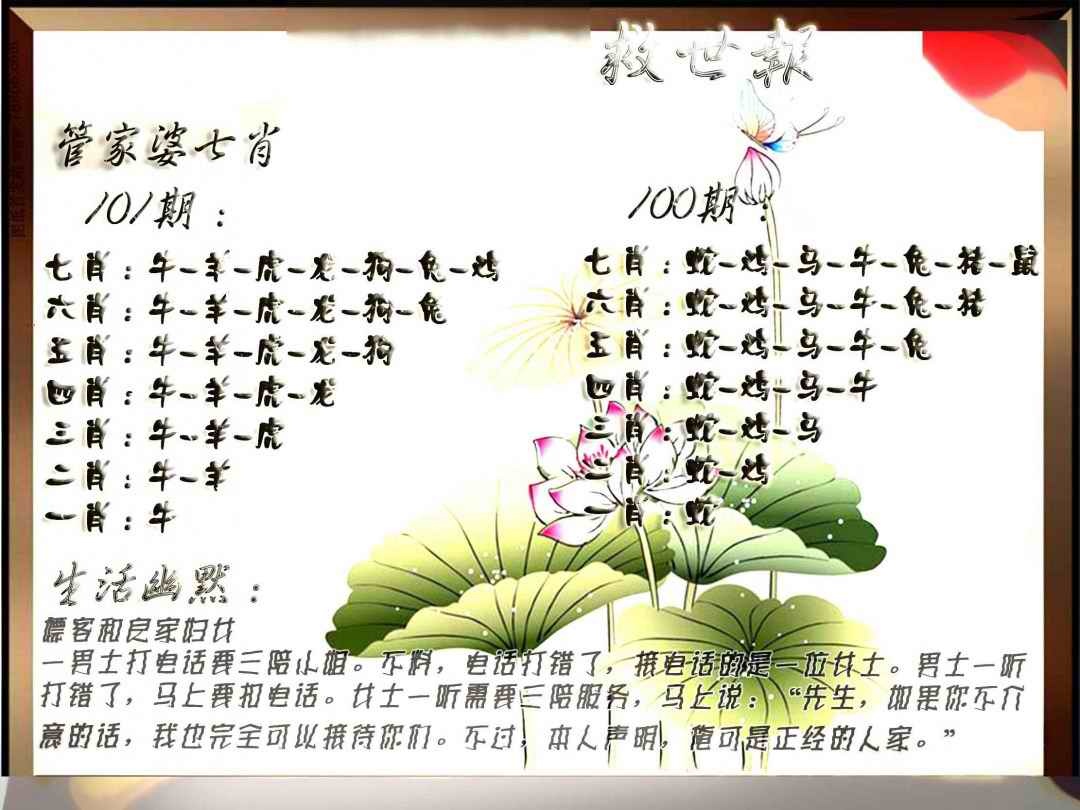 救世報
管家婆七肖
101期：
七肖：牛-羊-虎-龙-狗-兔-鸡
六肖：牛-羊-虎-龙-狗-兔
五肖：牛-羊-虎-龙-狗
四肖：牛-羊-虎-龙
三肖：牛-羊-虎
二肖：牛-羊
一肖：牛
100期：
七肖：蛇-鸡-马-牛-兔-猪-鼠
六肖：蛇-鸡-马-牛-兔-猪
五肖：蛇-鸡-马-牛-兔
四肖：蛇-鸡-马-牛
三肖：蛇-鸡-马
二肖：蛇-鸡
一肖：蛇
生活幽默：
嫖客和良家妇女
一男士打电话要三陪小姐。不料，电话打错了，接电话的是一位女士。男士一听
打错了，马上要扣电话。女士一听需要三陪服务，马上说：“先生，如果你不介
意的话，我也完全可以接待你们。不过，本人声明，俺可是正经的人家。”